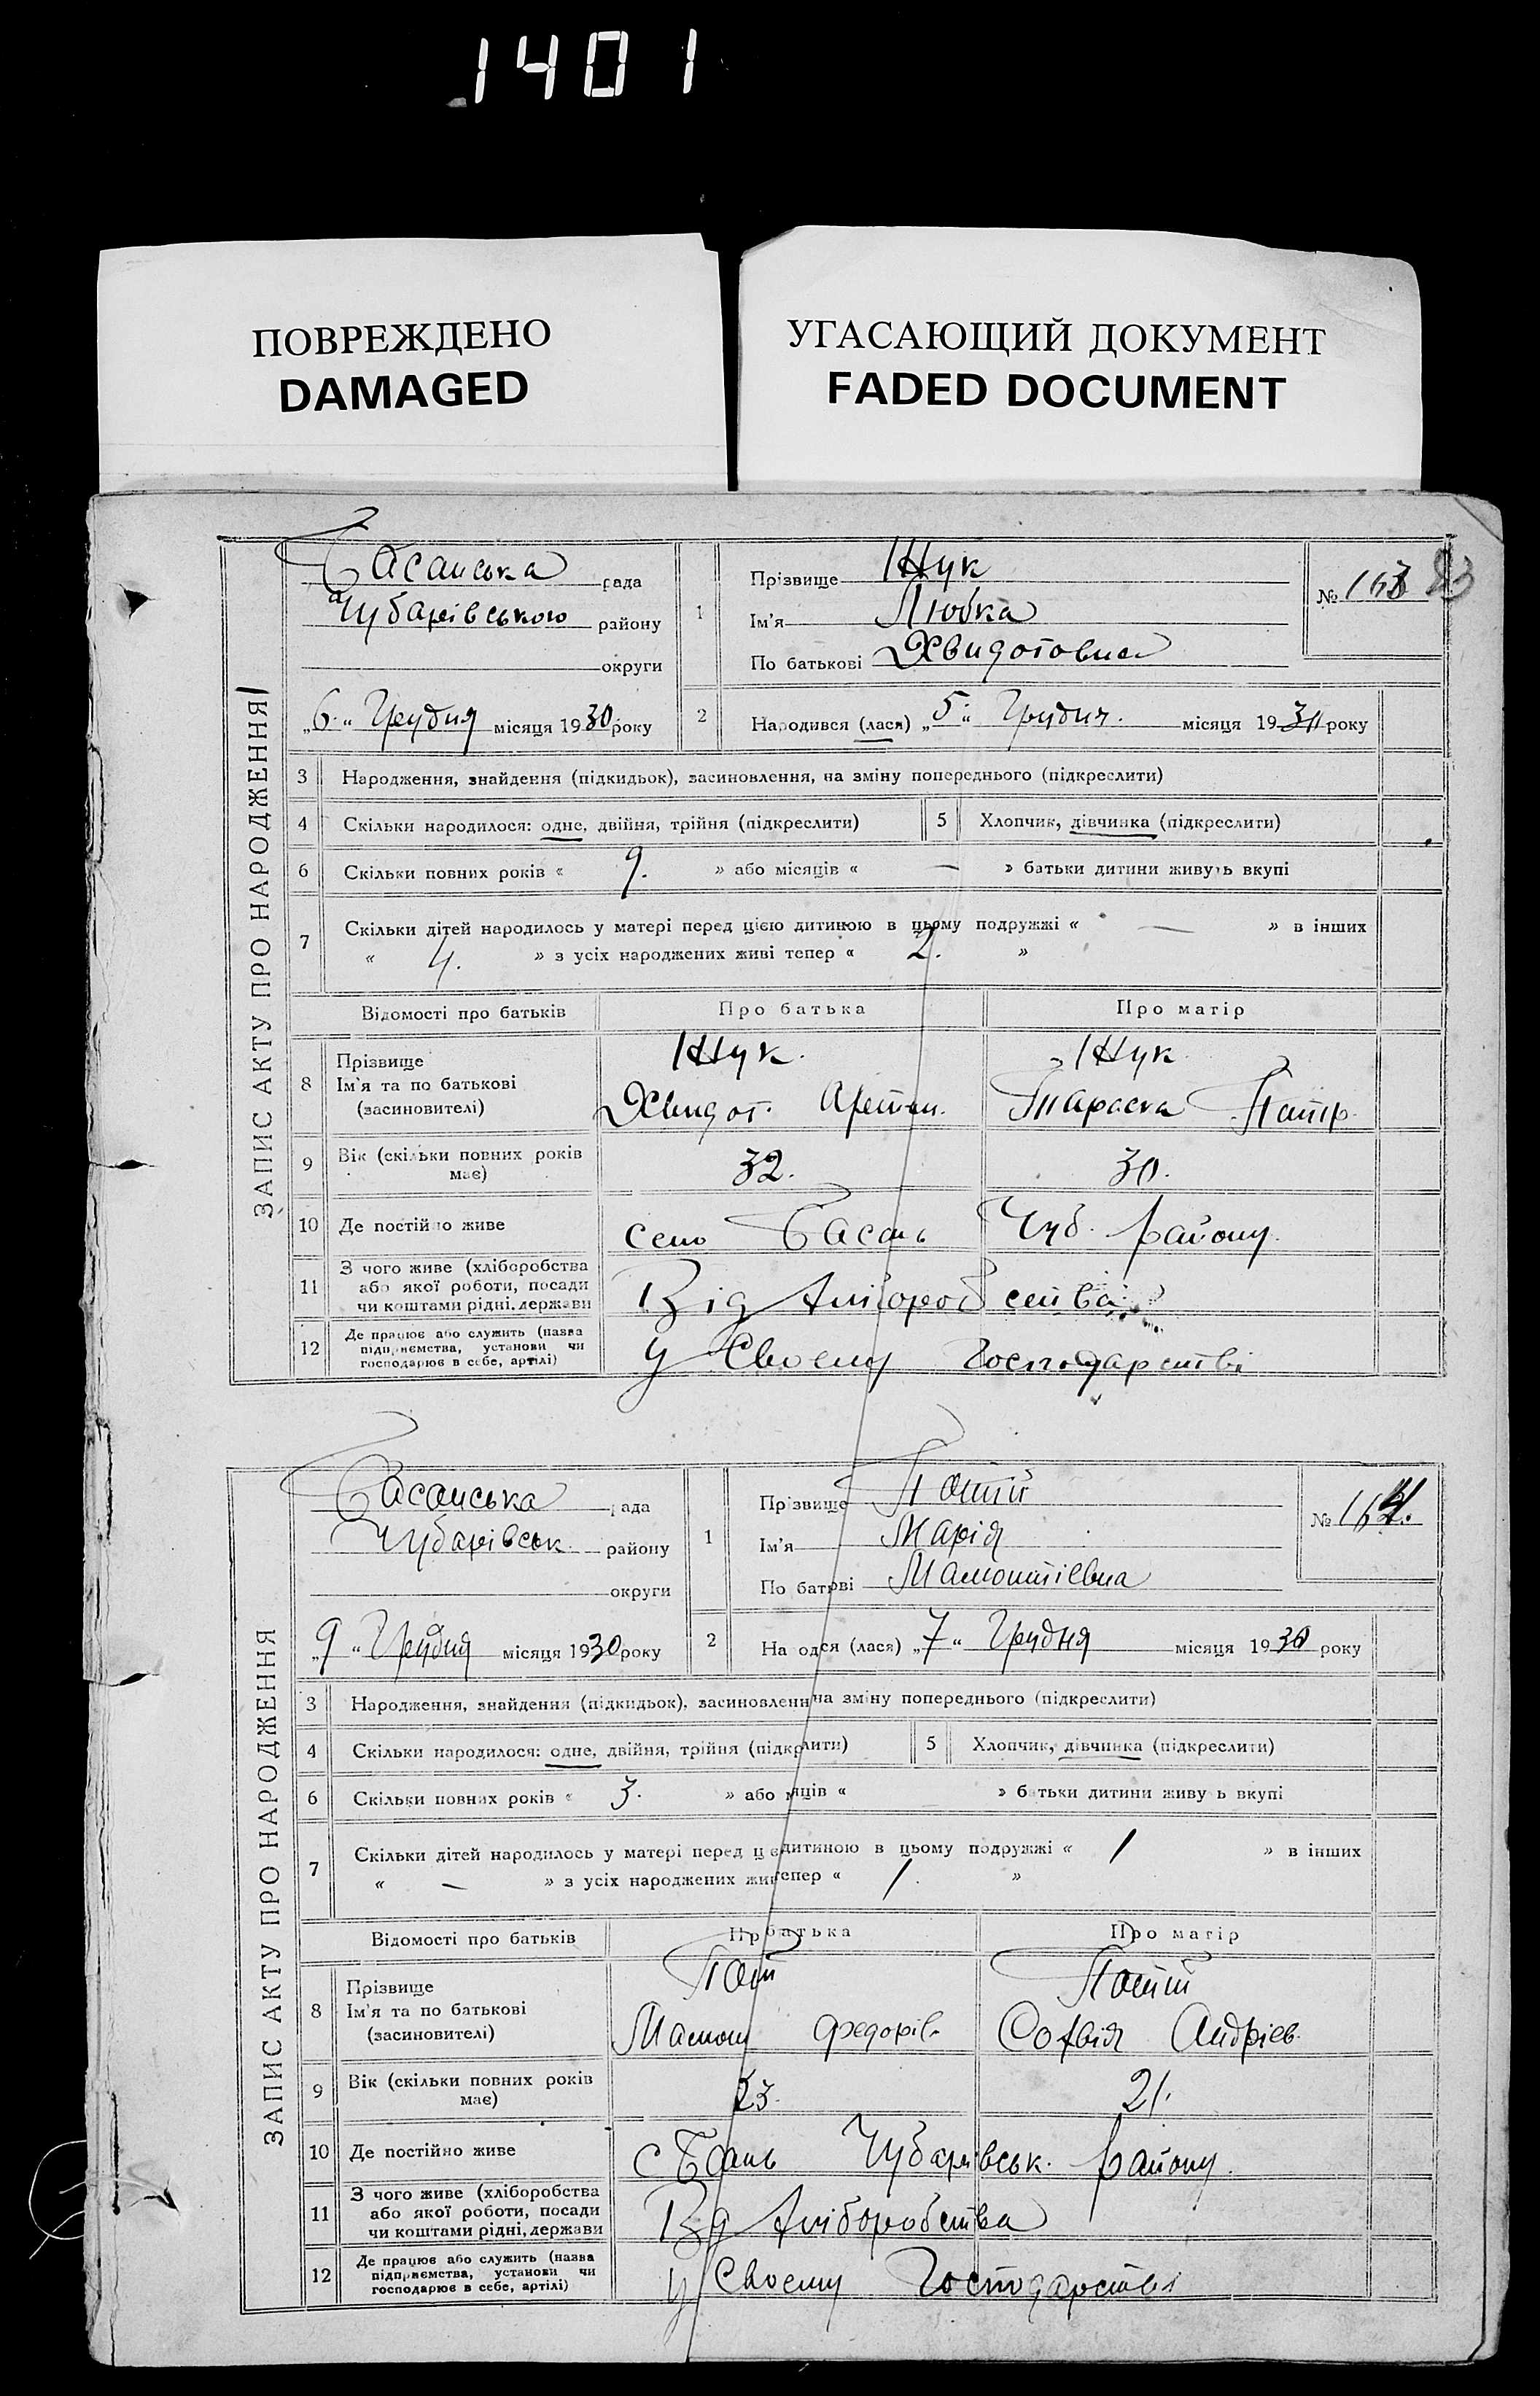 1401
ПОВРЕЖДЕНО
DAMAGED
УГАСАЮЩИЙ ДОКУМЕНТ
FADED DOCUMENT
ЗАПИС АКТУ ПРО НАРОДЖЕННЯ
Басанська рада
Чубарівського району
округи
„6“ Грудня місяця 1930 року
1
Прізвище Жук
Ім'я Любка
По батькові Хвидотовна
№ 163
83
2 Народився (лася) „5“ Грудня місяця 1930 року
3 Народження, знайдення (підкидьок), засиновлення, на зміну попереднього (підкреслити)
4 Скільки народилося: одне, двійня, трійня (підкреслити) 5 Хлопчик, дівчинка (підкреслити)
6 Скільки повних років « 9. » або місяців « — » батьки дитини живуть вкупі
7 Скільки дітей народилось у матері перед цією дитиною в цьому подружжі « — » в інших
« 4. » з усіх народжених живі тепер « 2. »
Відомості про батьків Про батька Про матір
8 Прізвище
Ім'я та по батькові
(засиновителі)
Жук. Жук
Хвидот. Артем. Параска
9 Вік (скільки повних років
має)
32. 30.
10 Де постійно живе село Басань Чуб. району.
11 З чого живе (хліборобства
або якої роботи, посади
чи коштами рідні, держави
Від хліборобства
12 Де працює або служить (назва
підприємства, установи чи
господарює в себе, артілі)
У своему господарстві
ЗАПИС АКТУ ПРО НАРОДЖЕННЯ
Басанська рада
Чубарівськ. району
округи
„9“ Грудня місяця 1930 року
1
Прізвище Папій
Ім'я Марія
По батові Мамонтіевна
№ 164.
2 На одся (лася) „7“ Грудня місяця 1930 року
3 Народження, знайдення (підкидьок), засиновленн на зміну попереднього (підкреслити)
4 Скільки народилося: одне, двійня, трійня (підкрлити) 5 Хлопчик, дівчинка (підкреслити)
6 Скільки повних років « 3. » або мяців « » батьки дитини живу ь вкупі
7 Скільки дітей народилось у матері перед цєдитиною в цьому подружжі « 1 » в інших
« — » з усіх народжених живтепер « 1. »
Відомості про батьків Прбатька Про матір
8 Прізвище
Ім'я та по батькові
(засиновителі)
Мамон Федорів. Софвія Андріев.
9 Вік (скільки повних років
має)
23. 21.
10 Де постійно живе с Бань Чубарівськ. району.
11 З чого живе (хліборобства
або якої роботи, посади
чи коштами рідні, держави
Вд хліборобства
12 Де працює або служить (назва
підприємства, установи чи
господарює в себе, артілі)
у своему господарстві